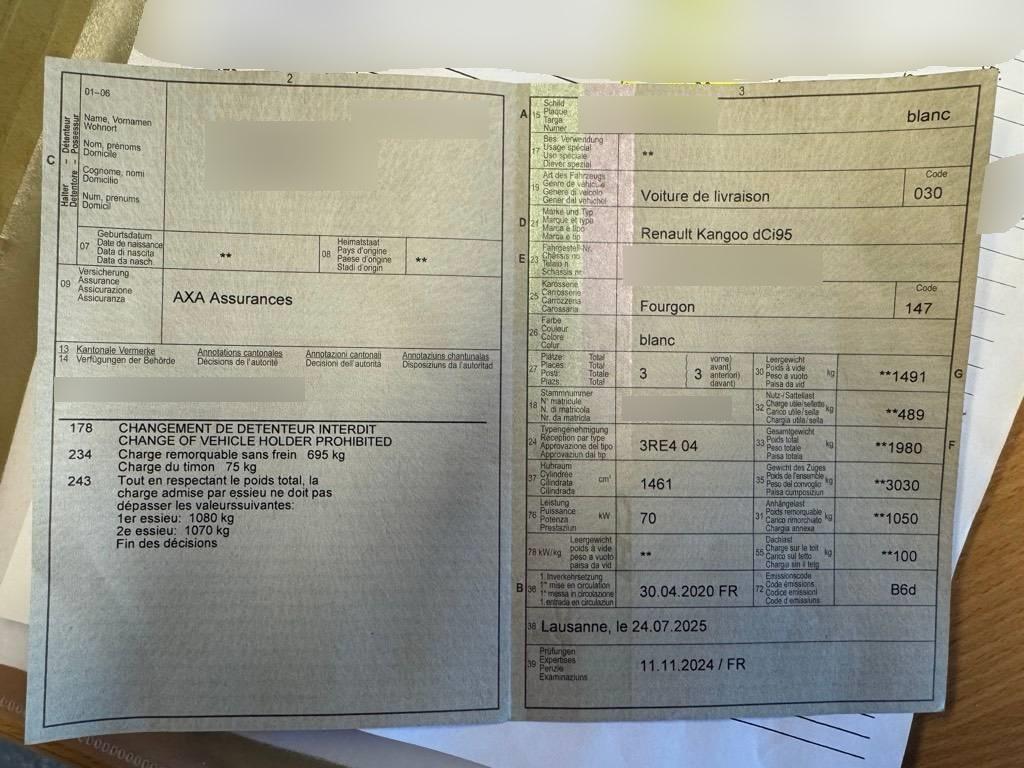 2
01–06
Name, Vornamen
Wohnort
Nom, prénoms
Domicile
Cognome, nomi
Domicilio
Num, prenums
Domicil
C
Halter – Détenteur
Detentore – Possessur
07
Geburtsdatum
Date de naissance
Data di nascita
Data da nasch.
**
08
Heimatstaat
Pays d'origine
Paese d'origine
Stadi d'origin
**
09
Versicherung
Assurance
Assicurazione
Assicuranza
AXA Assurances
13 Kantonale Vermerke Annotations cantonales Annotazioni cantonali Annotaziuns chantunalas
14 Verfügungen der Behörde Décisions de l'autorité Decisioni dell'autorità Disposiziuns da l'autoritad
178 CHANGEMENT DE DETENTEUR INTERDIT
CHANGE OF VEHICLE HOLDER PROHIBITED
234 Charge remorquable sans frein 695 kg
Charge du timon 75 kg
243 Tout en respectant le poids total, la
charge admise par essieu ne doit pas
dépasser les valeurssuivantes:
1er essieu: 1080 kg
2e essieu: 1070 kg
Fin des décisions
3
A 15
Schild
Plaque
Targa
Numer
blanc
17
Bes. Verwendung
Usage spécial
Uso speciale
Diever spezial
**
19
Art des Fahrzeugs
Genre de véhicule
Genere di veicolo
Gener dal vehichel
Voiture de livraison
Code
030
D 21
Marke und Typ
Marque et type
Marca e tipo
Marca e tip
Renault Kangoo dCi95
E 23
Fahrgestell-Nr.
Châssis no
Telaio n.
Schassis nr.
25
Karosserie
Carrosserie
Carrozzeria
Carossaria
Fourgon
Code
147
26
Farbe
Couleur
Colore
Colur
blanc
27
Plätze: Total
Places: Total
Posti: Totale
Plazs: Total
3
(3
vorne)
avant)
anteriori)
davant)
30
Leergewicht
Poids à vide
Peso a vuoto
Paisa da vid
kg
**1491
G
18
Stammnummer
N° matricule
N. di matricola
Nr. da matricla
32
Nutz-/Sattellast
Charge utile/sellette
Carico utile/sella
Chargia utila/sella
kg
**489
24
Typengenehmigung
Réception par type
Approvazione del tipo
Approvaziun dal tip
3RE4 04
33
Gesamtgewicht
Poids total
Peso totale
Paisa totala
kg
**1980
F
37
Hubraum
Cylindrée
Cilindrata
Cilindrada
cm³
1461
35
Gewicht des Zuges
Poids de l'ensemble
Peso del convoglio
Paisa cumposiziun
kg
**3030
76
Leistung
Puissance
Potenza
Prestaziun
kW
70
31
Anhängelast
Poids remorquable
Carico rimorchiato
Chargia annexa
kg
**1050
78 kW/kg
Leergewicht
poids à vide
peso a vuoto
paisa da vid
**
55
Dachlast
Charge sur le toit
Carico sul tetto
Chargia sin il tetg
kg
**100
B 36
1. Inverkehrsetzung
1re mise en circulation
1a messa in circolazione
1. entrada en circulaziun
30.04.2020 FR
72
Emissionscode
Code émissions
Codice emissioni
Code d'emissiuns
B6d
38 Lausanne, le 24.07.2025
39
Prüfungen
Expertises
Perizie
Examinaziuns
11.11.2024 / FR